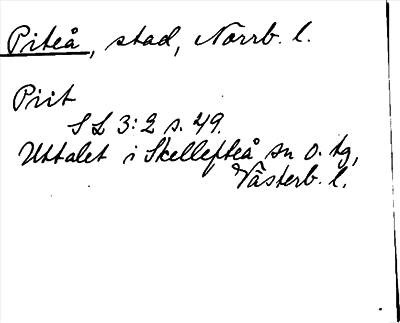 Piteå, stad, Norrb. l.
Piit
S L 3:2 s. 49.
Uttalet i Skellefteå sn o. tg,
Västerb. l.